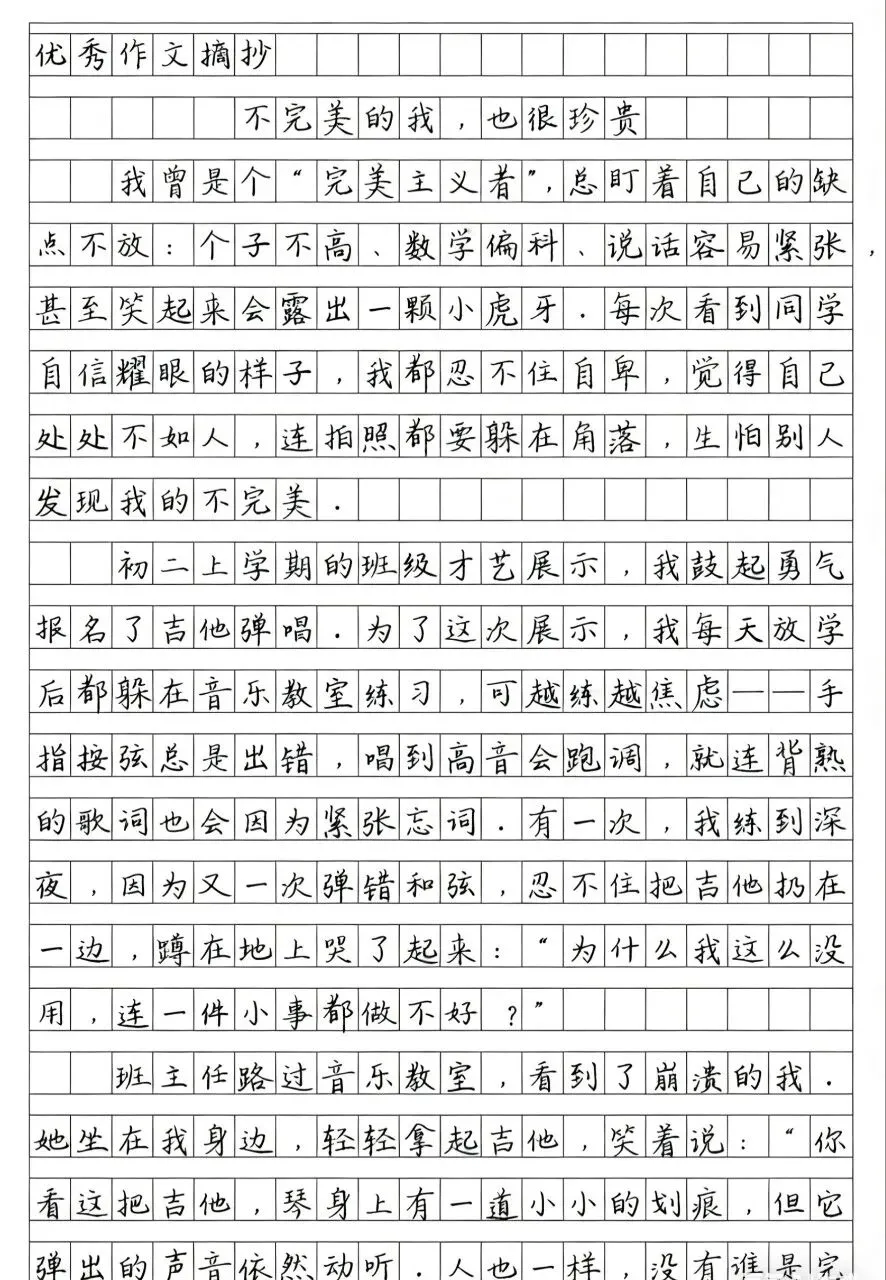 优秀作文摘抄
不完美的我，也很珍贵
我曾是个“完美主义者”，总盯着自己的缺
点不放：个子不高、数学偏科、说话容易紧张，
甚至笑起来会露出一颗小虎牙．每次看到同学
自信耀眼的样子，我都忍不住自卑，觉得自己
处处不如人，连拍照都要躲在角落，生怕别人
发现我的不完美．
初二上学期的班级才艺展示，我鼓起勇气
报名了吉他弹唱．为了这次展示，我每天放学
后都躲在音乐教室练习，可越练越焦虑——手
指按弦总是出错，唱到高音会跑调，就连背熟
的歌词也会因为紧张忘词．有一次，我练到深
夜，因为又一次弹错和弦，忍不住把吉他扔在
一边，蹲在地上哭了起来：“为什么我这么没
用，连一件小事都做不好？”
班主任路过音乐教室，看到了崩溃的我．
她坐在我身边，轻轻拿起吉他，笑着说：“你
看这把吉他，琴身上有一道小小的划痕，但它
弹出的声音依然动听．人也一样，没有谁是完